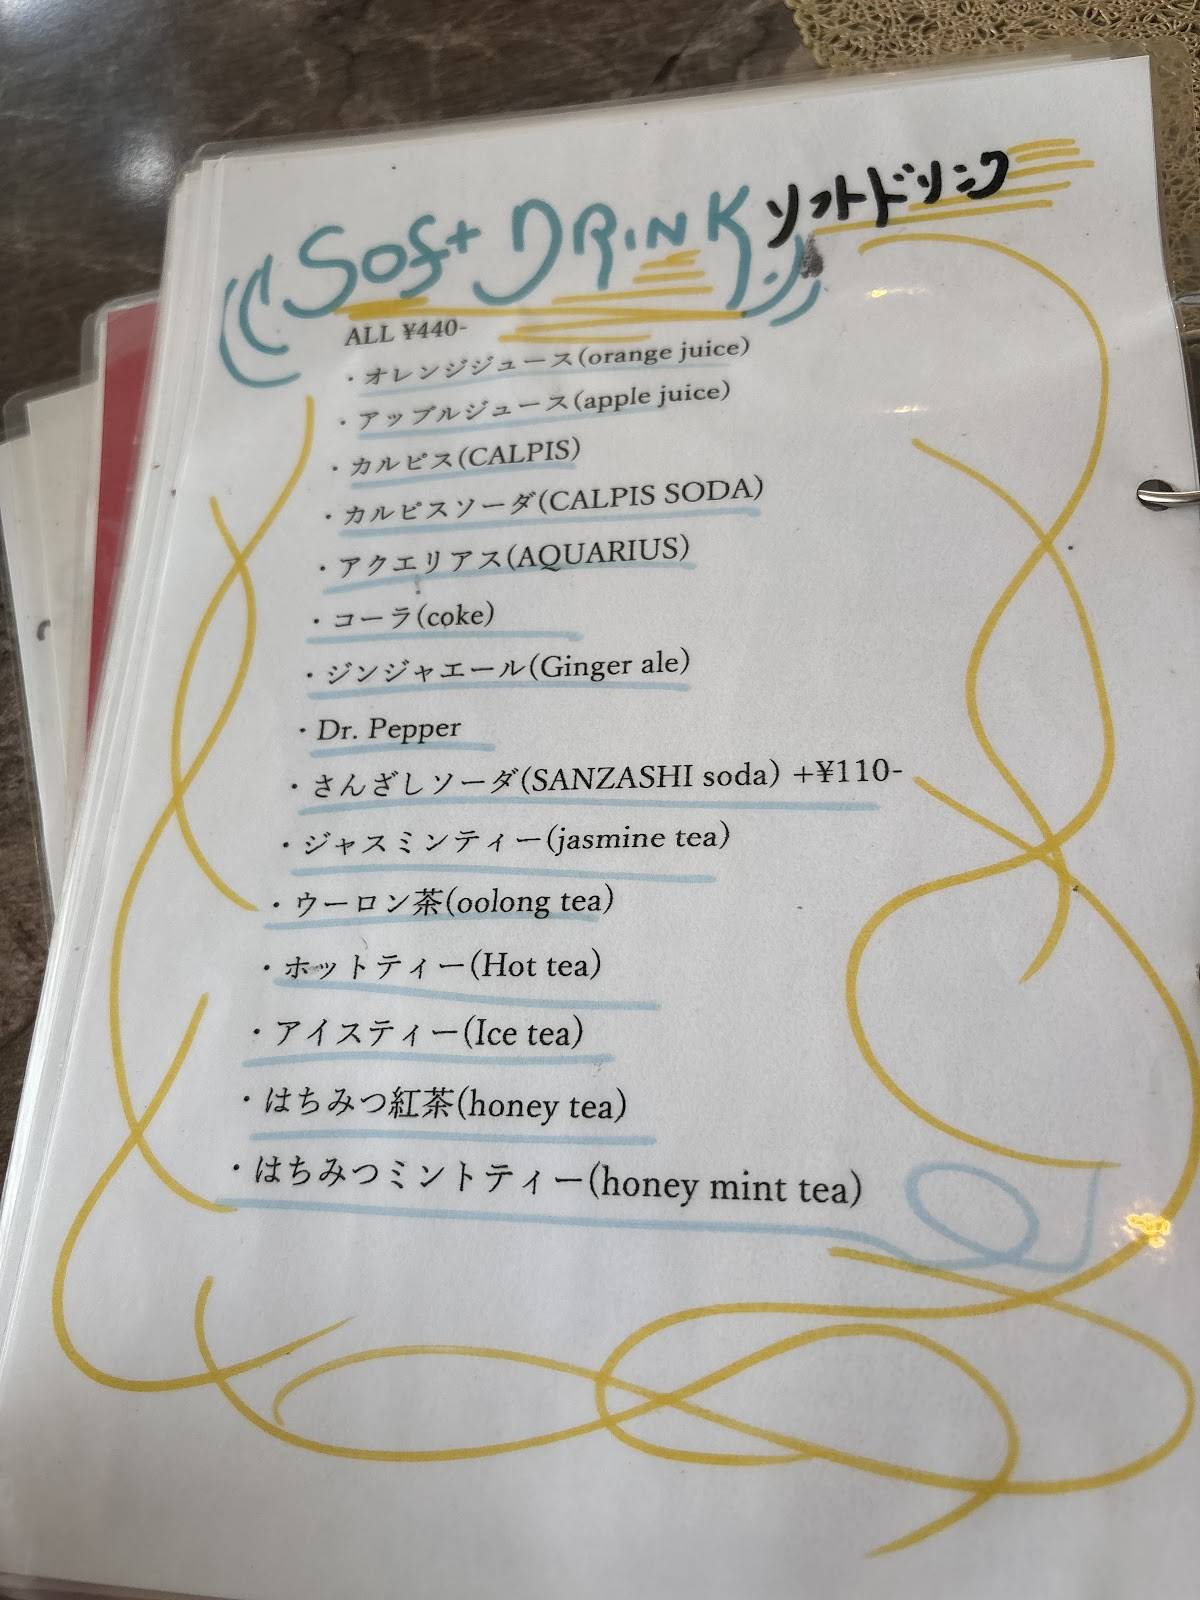 Soft DRINK ソフトドリンク
ALL ¥440-
・オレンジジュース(orange juice)
・アップルジュース(apple juice)
・カルピス(CALPIS)
・カルピスソーダ(CALPIS SODA)
・アクエリアス(AQUARIUS)
・コーラ(coke)
・ジンジャエール(Ginger ale)
・Dr. Pepper
・さんざしソーダ(SANZASHI soda) +¥110-
・ジャスミンティー(jasmine tea)
・ウーロン茶(oolong tea)
・ホットティー(Hot tea)
・アイスティー(Ice tea)
・はちみつ紅茶(honey tea)
・はちみつミントティー(honey mint tea)